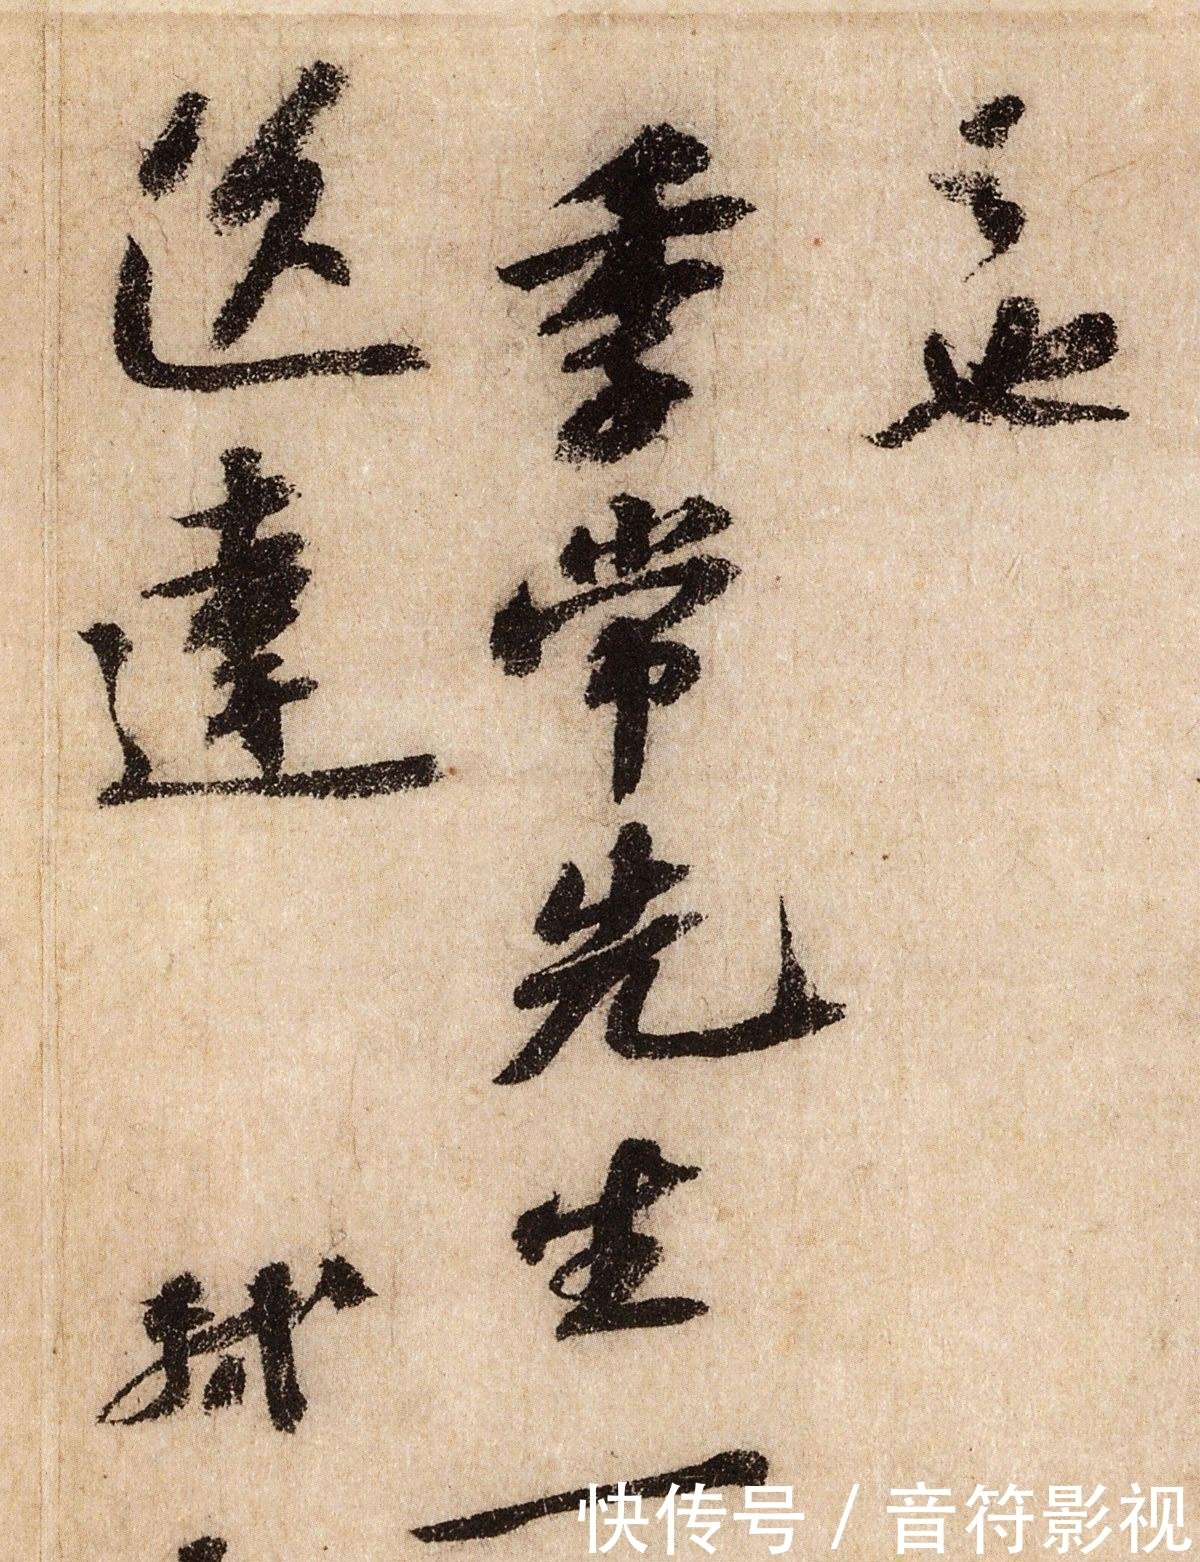 之也
季常先生一
送達 軾
快传号 / 音符影视